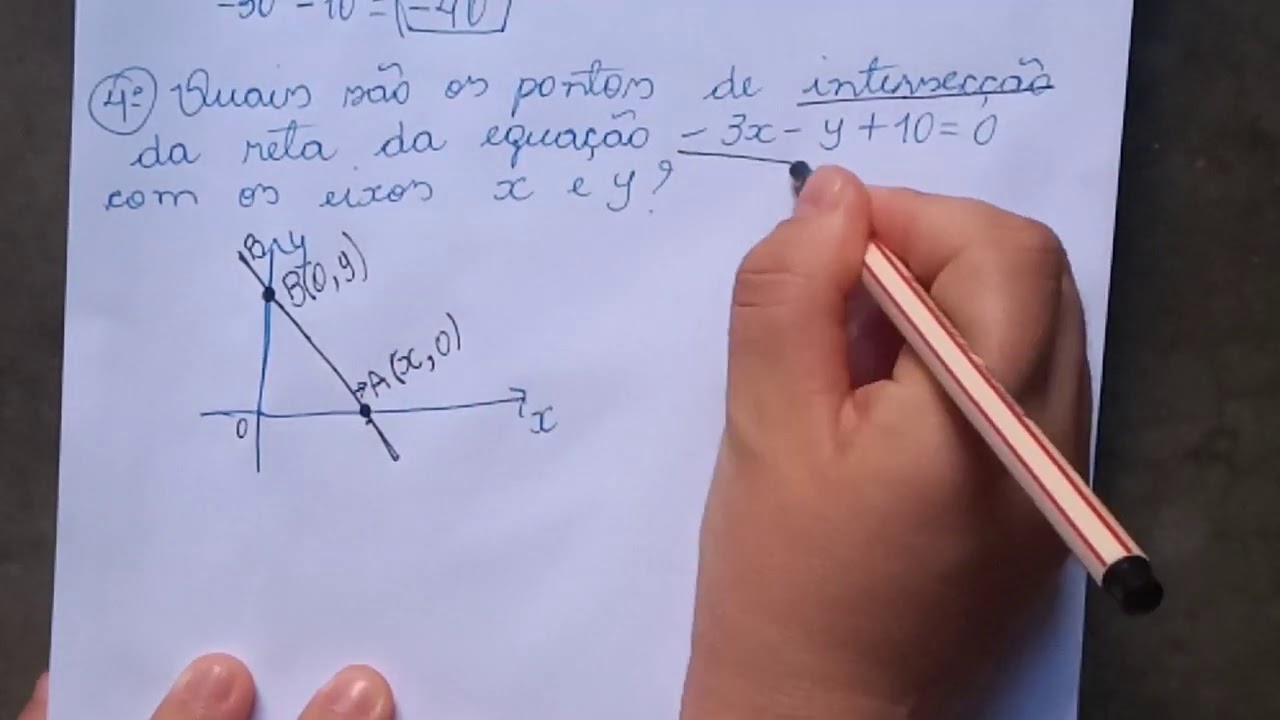 -30 - 10 = -40
4º Quais são os pontos de intersecção
da reta da equação - 3x - y + 10 = 0
com os eixos x e y?
B y
B(0, y)
A (x, 0)
0
x